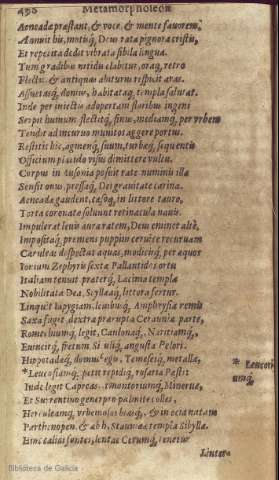 490 Metamorphoseon
Aeneadæ præstant, & voce, & mente fauorem,
Annuit his, motisq, Deus rata pignora cristis,
Et repetita dedit vibrata sibila lingua.
Tum gradibus nitidis delabitur, oraq, retro
Flectit, & antiquas abiturus respicit aras.
Assuetasq, domos, habitataq, templa salutat.
Inde per iniectis adopertam floribus ingens
Serpit humum flectitq, sinus, mediamq, per vrbem
Tendit ad incuruo munitos aggere portus.
Restitit hic, agmenq, suum, turbæq, sequentis
Officium placido visus dimittere vultu,
Corpus in Ausonia posuit rate numinis illa
Sensit onus, pressaq, Dei grauitate carina.
Aeneadæ gaudent, cæsoq, in littore tauro,
Torta coronatæ soluunt retinacula nauis.
Impulerat leuis aura ratem, Deus eminet alte,
Impositaq, premens puppim ceruice recuruam
Cæruleas despectat aquas, modicisq, per æquor
Ionium Zephyris sexto Pallantidos ortu
Italiam tenuit præterq, Lacinia templa
Nobilitata Dea, Scyllæaq, littora fertur.
Linquit Iapygiam, læuibusq, Amphrysia remis
Saxa fugit, dextra prærupta Cerauniæ parte,
Romethiumq, legit, Caulonaq, Nariciamq,
Euincitq, fretum Siculiq, angusta Pelori.
Hippotadæq, domus regis, Temesesq, metalla,
*Leucosiamq, petit tepidiq, rosaria Pæsti
Inde legit Capreas, promontoriumq, Mineruæ,
Et Surrentino generosos palmite colles,
Herculeamq, vrbem
Parthenopen, & ab hac Cumææ templa Sibyllæ.
Hinc calidi fontes, lentis
Lintera
* Leucosi
amq,
Biblioteca de Galicia